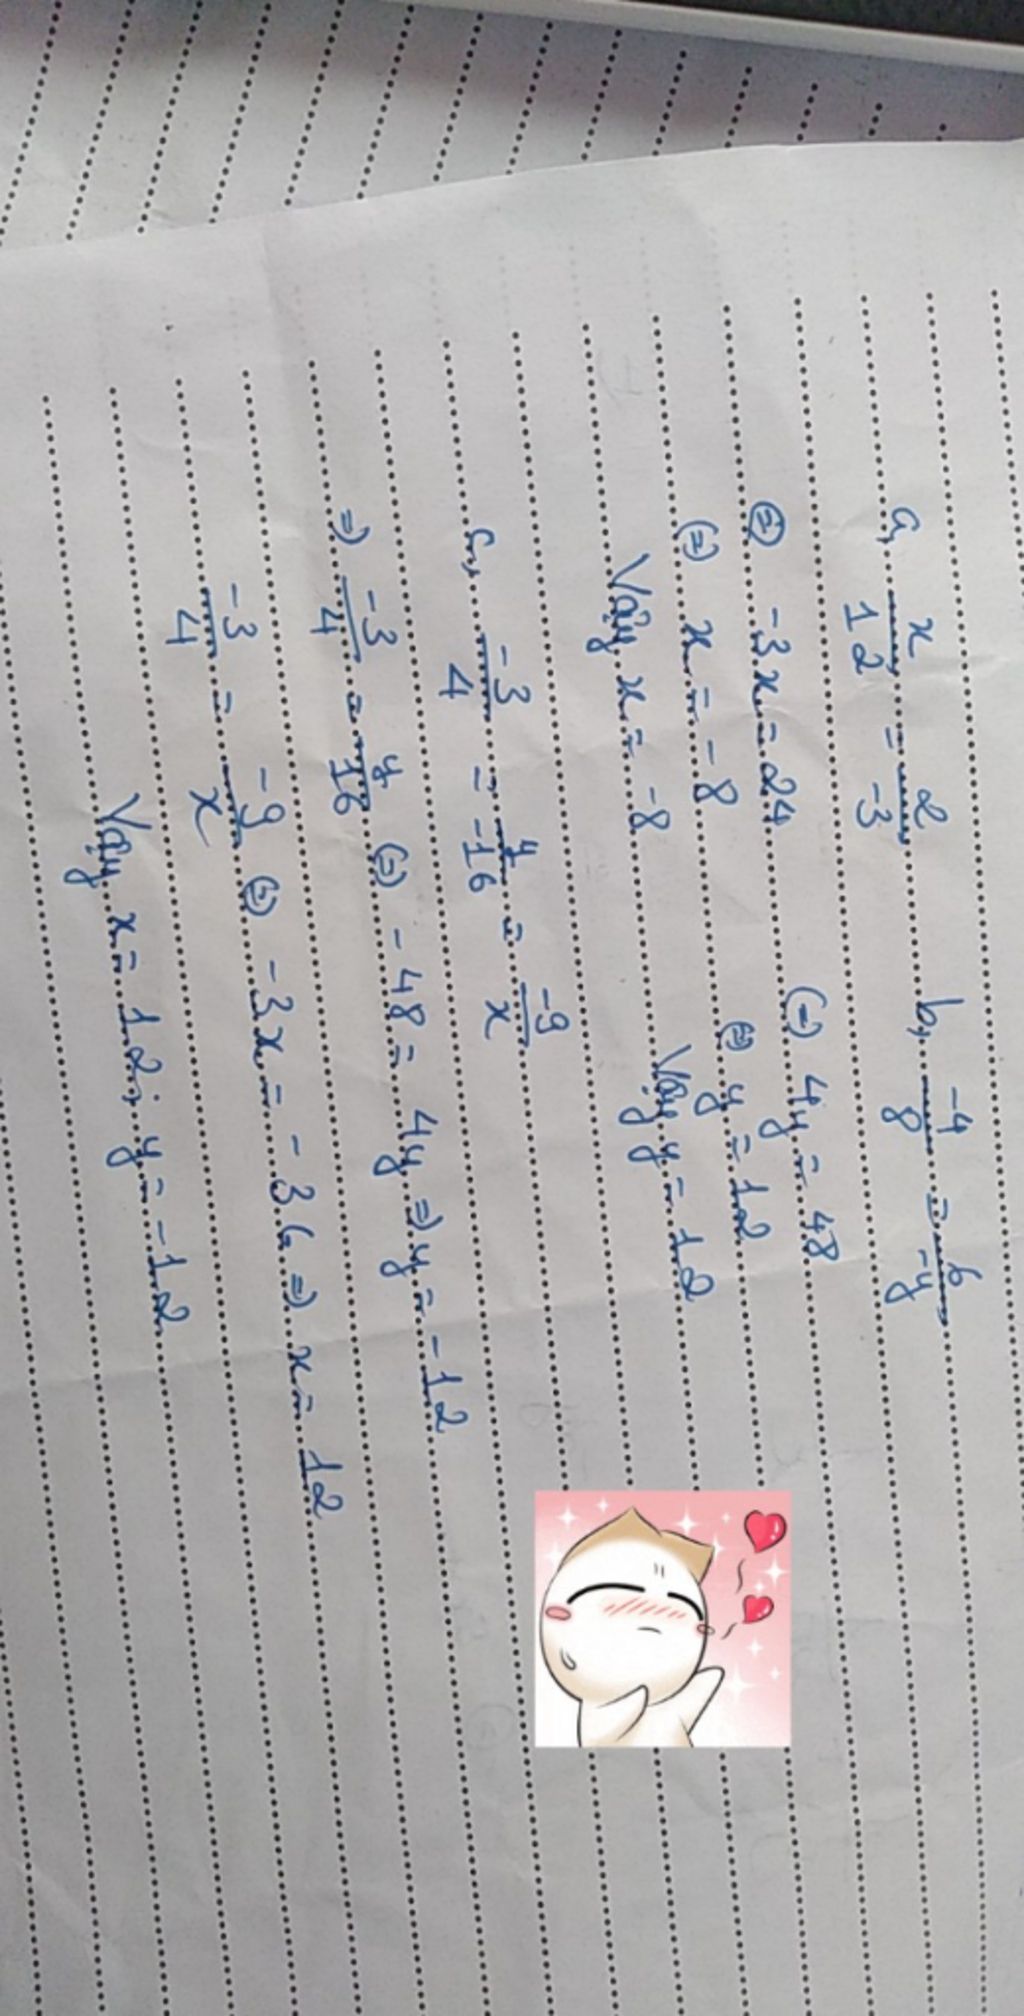 a, x/12 = 2/-3
(=) -3x = 24
(=) x = -8
Vậy x = -8
b, -4/8 = 6/-y
(=) 4y = 48
(=) y = 12
Vậy y = 12
c, -3/4 = y/-16 = -9/x
=) -3/4 = y/16 (=) -48 = 4y =) y = -12
-3/4 = -9/x (=) -3x = -36 =) x = 12
Vậy x = 12; y = -12